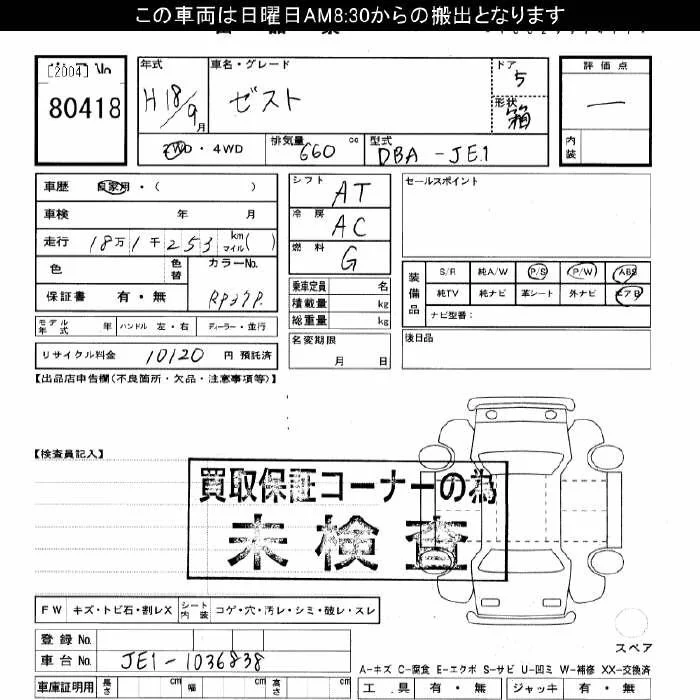 この車両は日曜日AM8:30からの搬出となります
[2004] No
80418
年式 H18/9月
車名・グレード ゼスト
ドア 5
形状 箱
評価点 —
内装
2WD・4WD
排気量 660 cc
型式 DBA-JE1
車歴 自家用・( )
車検 年 月
走行 18万1千253 km マイル( )
色 色替 カラーNo.
保証書 有・無 RP37P
モデル年式 年 ハンドル 左・右 ディーラー・並行
リサイクル料金 10120 円 預託済
シフト AT
冷房 AC
燃料 G
乗車定員 名
積載量 kg
総重量 kg
名変期限 月 日
セールスポイント
装備品
S/R 純A/W P/S P/W ABS
純TV 純ナビ 革シート 外ナビ エアB
ナビ型番:
後日品
【出品店申告欄(不良箇所・欠品・注意事項等)】
【検査員記入】
買取保証コーナーの為
未検査
FW キズ・トビ石・割レX シート内装 コゲ・穴・汚レ・シミ・破レ・スレ
登録No.
車台No. JE1-1036838
車庫証明用 長さ cm 幅 cm 高さ cm
スペア
A-キズ C-腐食 E-エクボ S-サビ U-凹ミ W-補修 XX-交換済
工具 有・無 ジャッキ 有・無